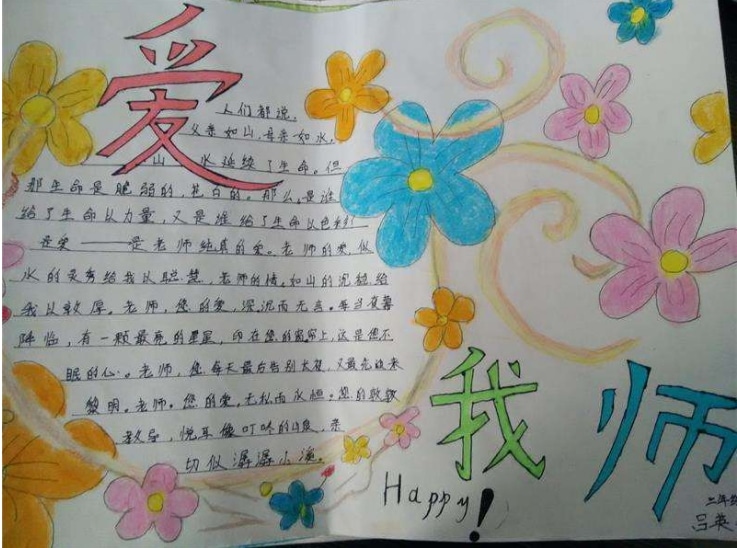 爱
人们都说,
父亲如山,母亲如水,
山 水延续了生命。但
那生命是脆弱的,苍白的。那么,是谁
给了生命以力量,又是谁给了生命以色彩
是爱——是老师纯真的爱。老师的爱,似
水的灵秀给我以聪慧,老师的情,如山的沉稳,给
我以敦厚。老师,您的爱,深沉而无言。每当夜幕
降临,有一颗最亮的星星,印在您的窗帘上,这是您不
眠的心。老师,您每天最后告别太夜,又最先迎来
黎明。老师。您的爱,无私而永恒。您的敦敦
教导,悦耳像叮咚的山泉,亲
切似潺潺小溪。
我师
Happy!
二年
吕英